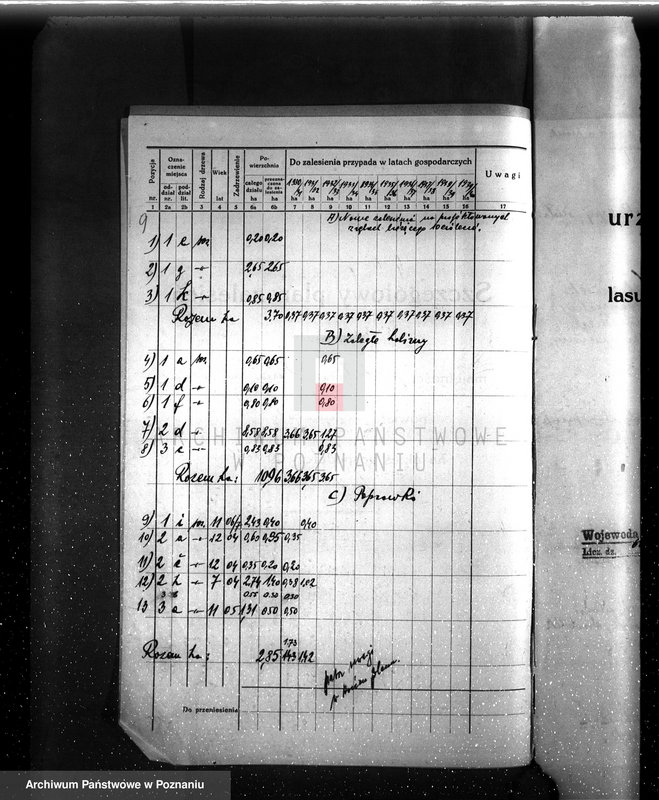 Pozycja nr. Oznaczenie miejsca oddział nr. poddział lit. Rodzaj drzewa Wiek lat Zadrzewienie Powierzchnia całego działu ha przeznaczona do zalesienia ha Do zalesienia przypada w latach gospodarczych Uwagi
ha ha ha ha ha ha ha ha ha ha
1 2a 2b 3 4 5 6a 6b 7 8 9 10 11 12 13 14 15 16 17
9
A) Nowe zalesienia na projektowanych
1) 1 c m. 0,20 0,20
2) 1 g -"- 2,65 2,65
3) 1 k -"- 0,85 0,85
Razem ha 3,70 0,37 0,37 0,37 0,37 0,37 0,37 0,37 0,37 0,37 0,37
B) Zaległe halizny
4) 1 a m. 0,65 0,65 0,65
5) 1 d -"- 0,10 0,10 0,10
6) 1 f -"- 0,80 0,80 0,80
7) 2 d -"- 8,58 8,58 3,66 3,65 1,27
8) 3 c -"- 0,83 0,83 0,83
Razem ha: 10,96 3,66 3,65 3,65
C) Poprawki
9) 1 i m. 11 2,43 0,40 0,40
10) 2 a -"- 12 04 0,60 0,35 0,35
11) 2 -"- 12 04 0,35 0,20 0,20
12) 2 h -"- 7 04 2,74 1,40 0,38 1,02
0,55 0,30 0,30
13 3 a -"- 11 05 1,31 0,50 0,50
1,73
Razem ha: 2,85 1,43 1,42
Do przeniesienia
urz
lasu
Wojewoda
Licz. dz.
ARCHIWUM PAŃSTWOWE
W POZNANIU
Archiwum Państwowe w Poznaniu